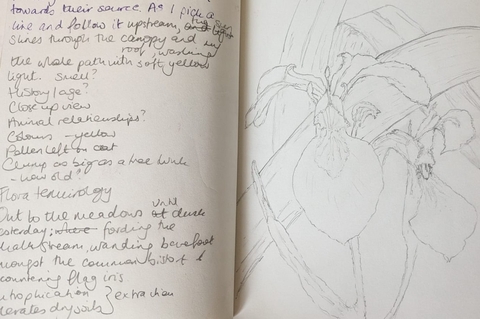 towards their source. As I pick a
line and follow it upstream, the sun
shines through the canopy and my
roof, washing
the whole path with soft yellow
light. Smell?
History/age?
Close up view
Animal relationships?
Colours - yellow
Pollen left on coat
Clump as big as a tree trunk
- how old?
Flora terminology
Out to the meadows at until dusk
yesterday; where fording the
chalkstream, wanding barefoot
amongst the common bistort &
countering flag iris
utrophication } extraction
lerates dry soils